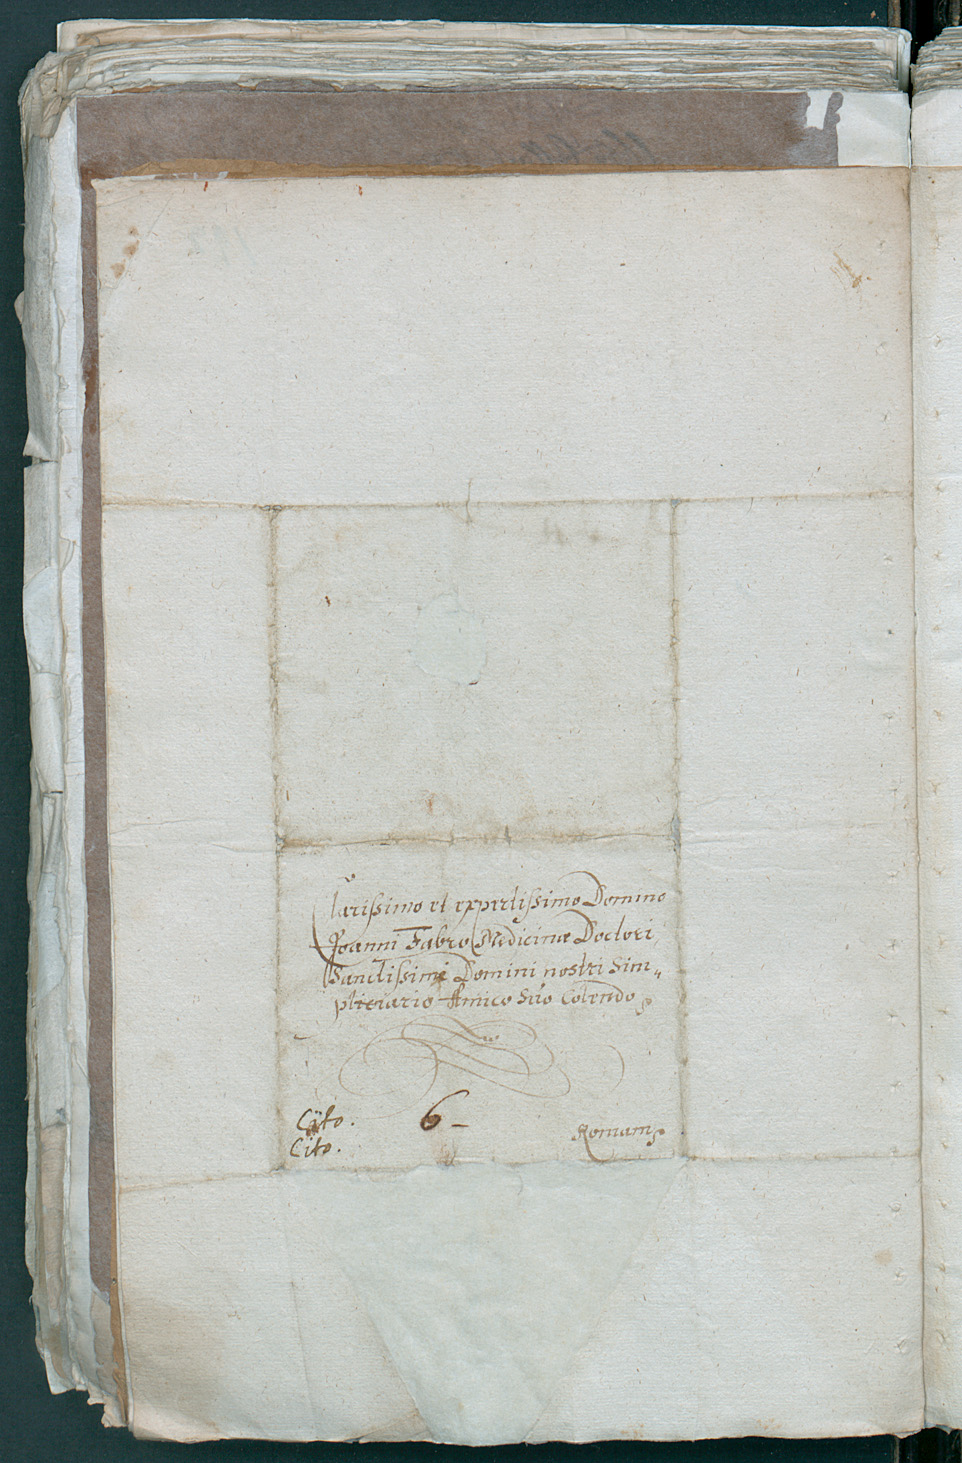 Clarissimo et expertissimo Domino
Joanni Fabro Medicinæ Doctori,
Sanctissimi Domini nostri Sim„
pliciario Amico Suo Colendo
Cito.
6 –
Cito.
Romam